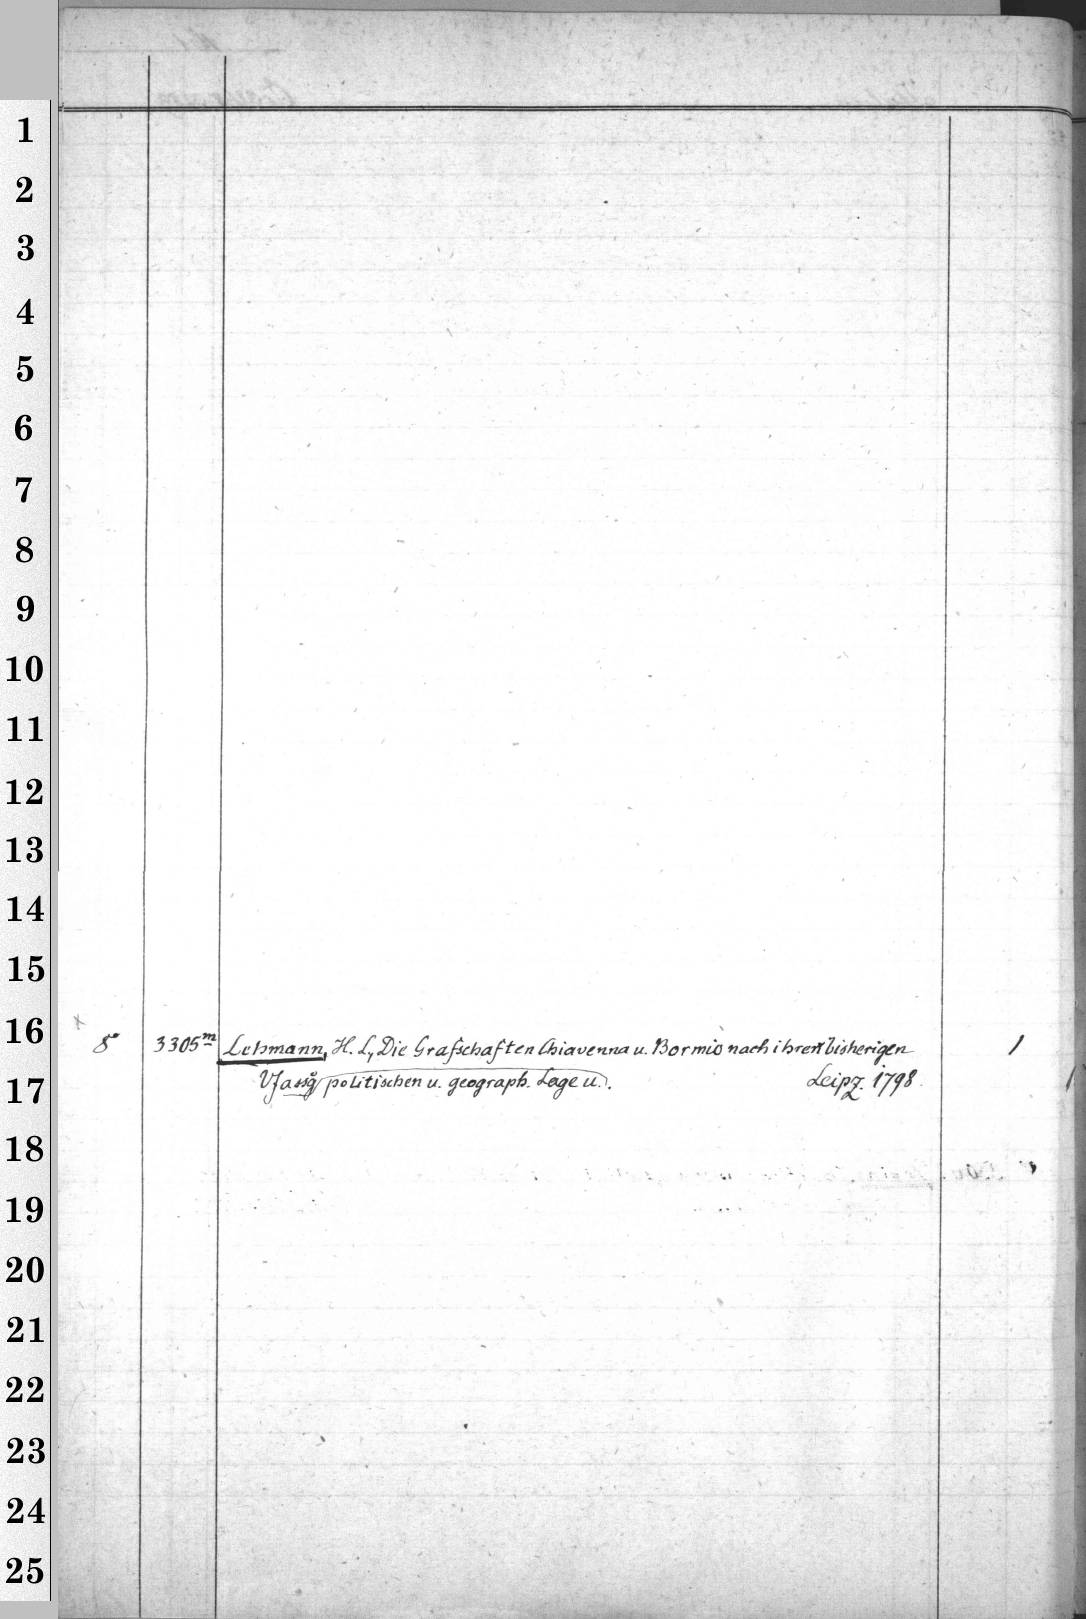 1
2
3
4
5
6
7
8
9
10
11
12
13
14
15
16
8° 3305m Lehmann, H. L., Die Grafschaften Chiavenna u. Bormio nach ihren bisherigen 1
17
Vfassg politischen u. geograph. Lage u.. Leipz. 1798.
18
19
20
21
22
23
24
25